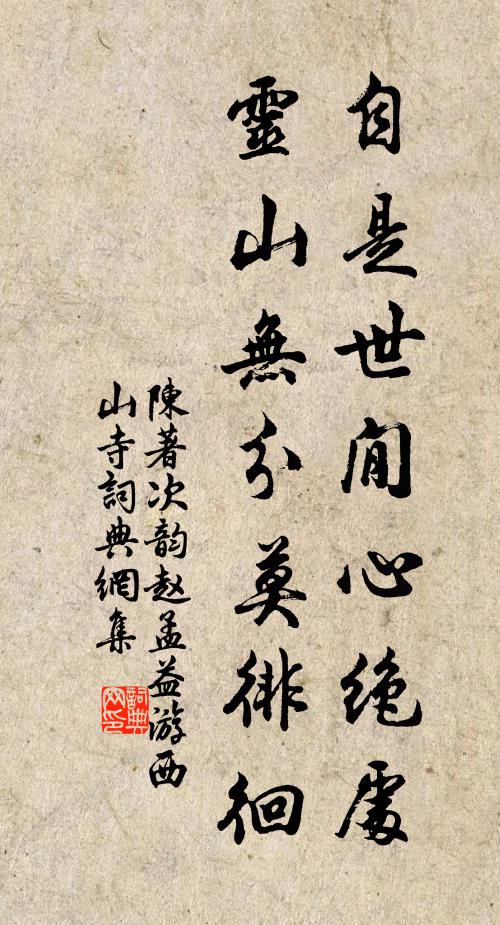 自是世間心絶處
靈山無分莫徘徊
陳著次韵赵孟益游西
山寺詞典網集
詞典网印